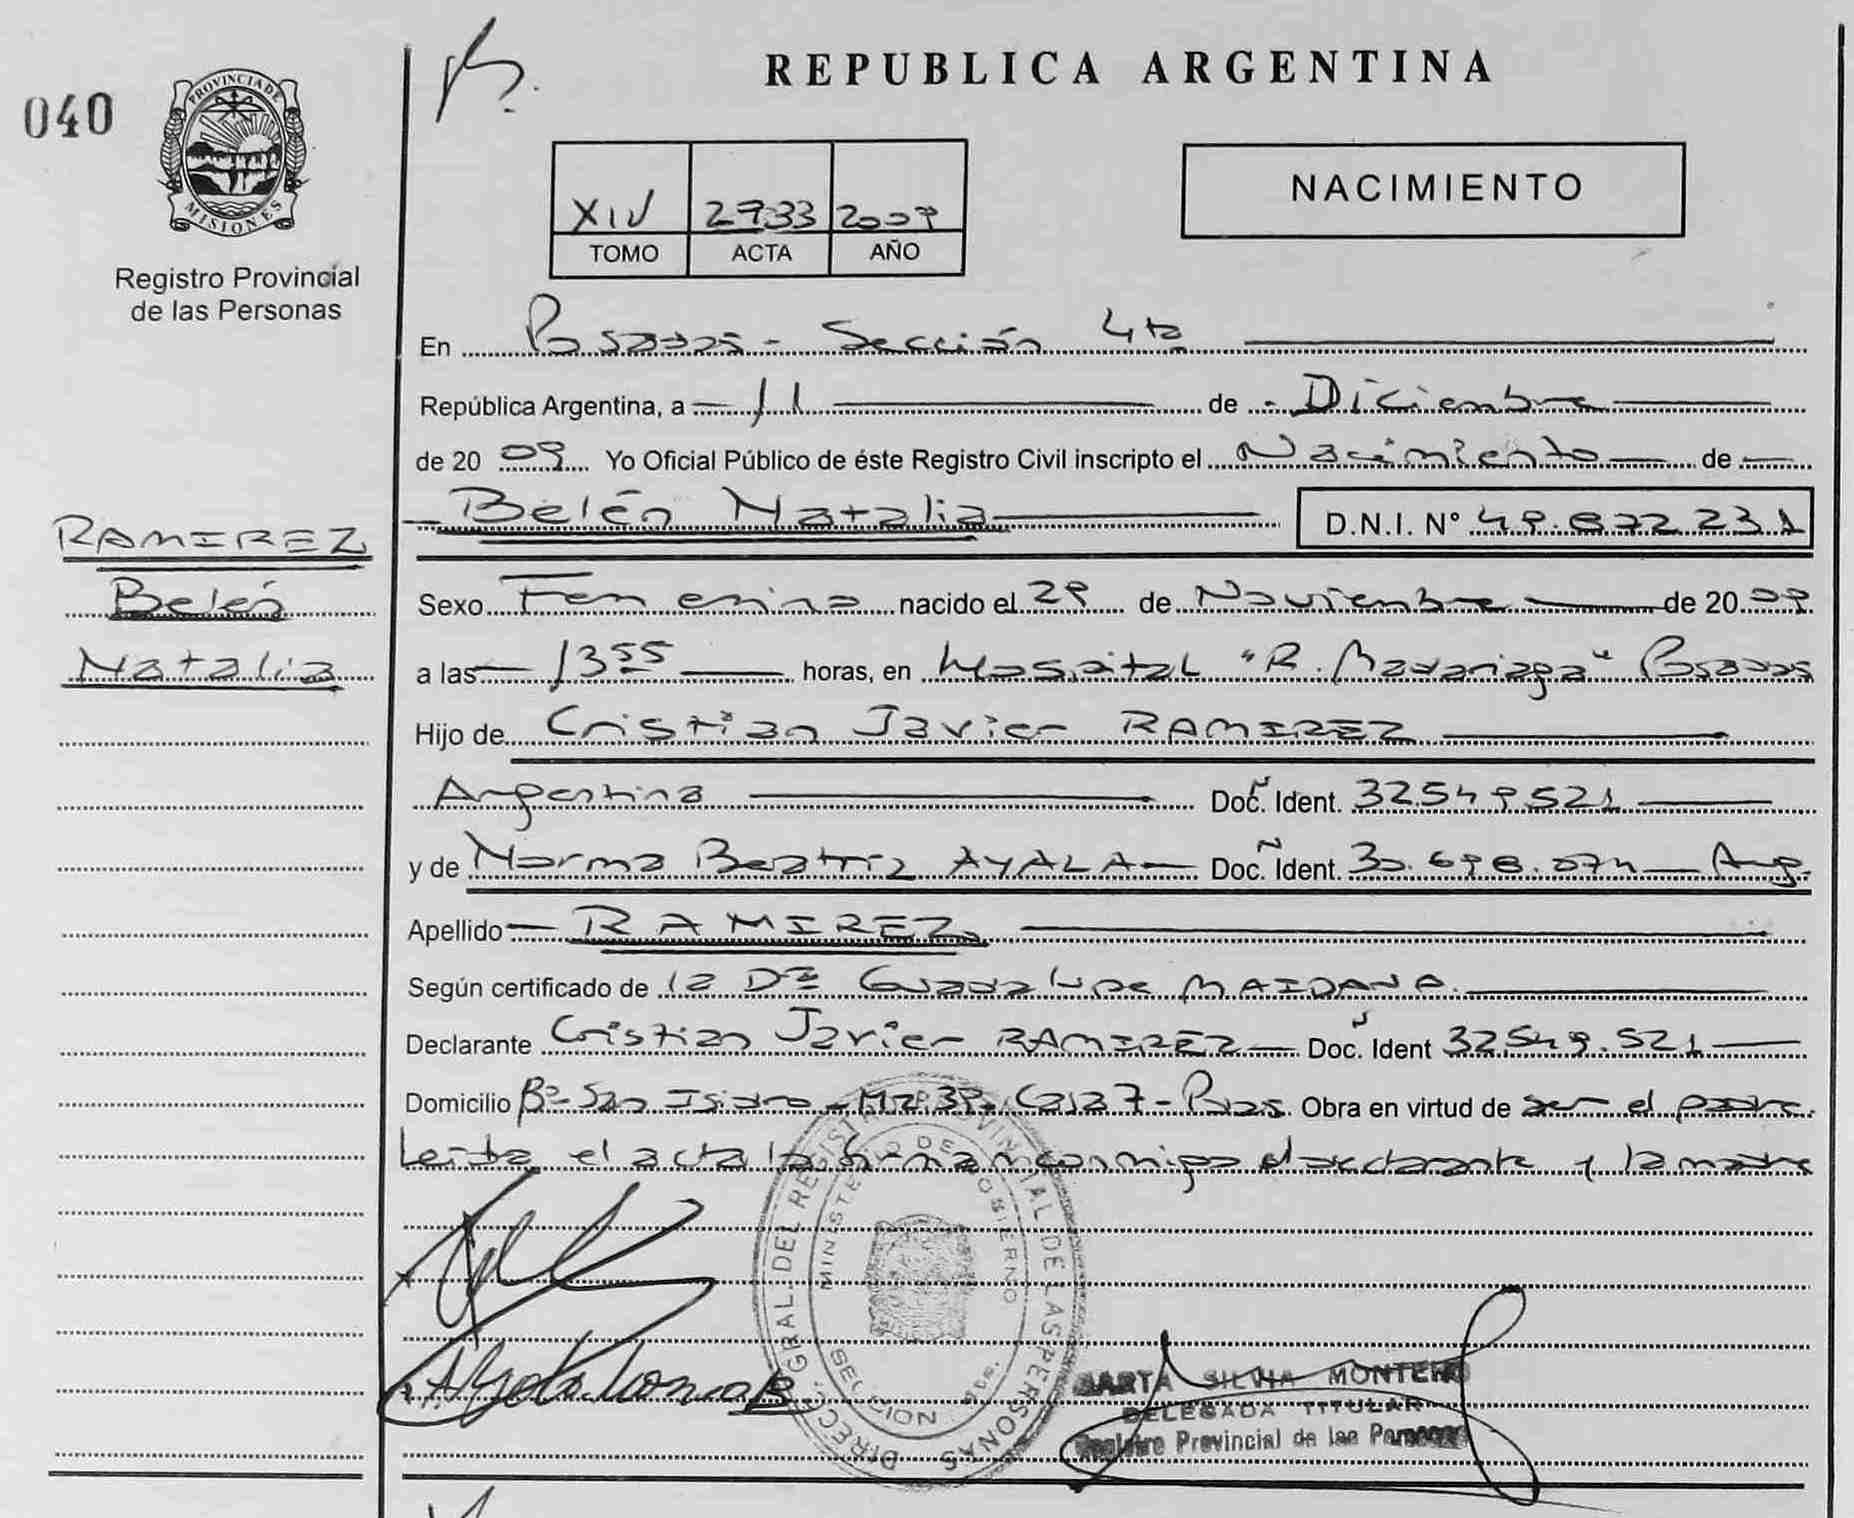 REPUBLICA ARGENTINA
040
PROVINCIA DE MISIONES
Registro Provincial
de las Personas
XIV 2933 2009
TOMO ACTA AÑO
NACIMIENTO
En Posadas - Sección 4ta
República Argentina, a 11 de Diciembre
de 20 09 Yo Oficial Público de éste Registro Civil inscripto el Nacimiento de
Belén Natalia D.N.I. N° 49.872.231
RAMIREZ
Belén
Natalia
Sexo Femenino nacido el 29 de Noviembre de 20 09
a las 13 55 horas, en Hospital "R. Madariaga" Posadas
Hijo de Cristian Javier RAMIREZ
Argentina Doc. Ident. 32.549.521
y de Norma Beatriz AYALA Doc. Ident. 30.698.074 Arg.
Apellido RAMIREZ
Según certificado de la Dra Guadalupe MAIDANA.
Declarante Cristian Javier RAMIREZ Doc. Ident 32.549.521
Domicilio Bº San Isidro - Mz 39 - Casa 7 - Pdas. Obra en virtud de ser el padre.
Leída el acta la firman conmigo el declarante y la madre
DIRECC. GRAL. DEL REGISTRO PROVINCIAL DE LAS PERSONAS
MINISTERIO DE GOBIERNO
SECCION
MARTA SILVIA MONTERO
DELEGADA TITULAR
Registro Provincial de las Personas